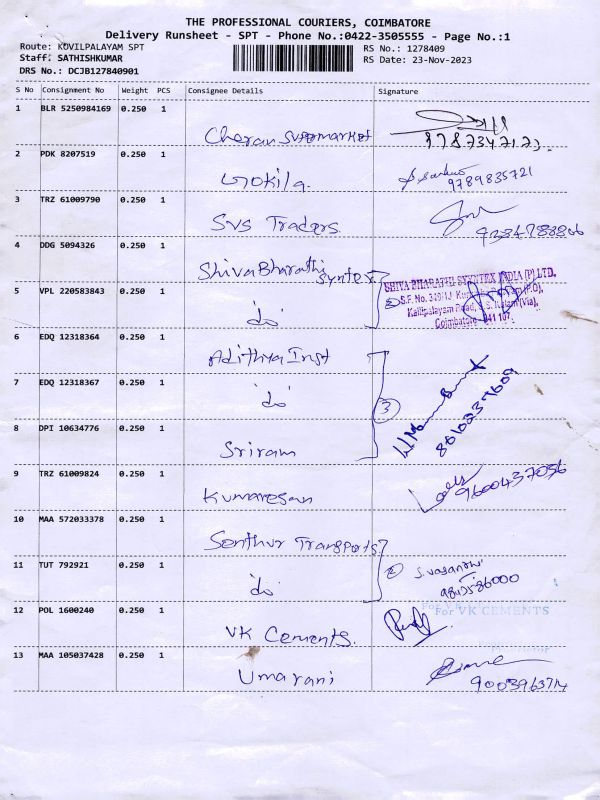 THE PROFESSIONAL COURIERS, COIMBATORE
Delivery Runsheet - SPT - Phone No.:0422-3505555 - Page No.:1
Route: KOVILPALAYAM SPT RS No.: 1278409
Staff: SATHISHKUMAR RS Date: 23-Nov-2023
DRS No.: DCJB127840901
S No Consignment No Weight PCS Consignee Details Signature
1 BLR 5250984169 0.250 1
Cheran Supermarket
2 PDK 8207519 0.250 1
Gokila. 9789835721
3 TRZ 61009790 0.250 1
SVS Traders
4 DDG 5094326 0.250 1
Shiva Bharathi
Syntex
SHIVA BHARATHI SYNTEX INDIA (P) LTD.
5 VPL 220583843 0.250 1
do
Coimbatore
6 EDQ 12318364 0.250 1
Adithya Inst
7 EDQ 12318367 0.250 1
do 3
8 DPI 10634776 0.250 1
Sriram
9 TRZ 61009824 0.250 1
Kumaresan 9600437056
10 MAA 572033378 0.250 1
Senthur Transports
11 TUT 792921 0.250 1
do
12 POL 1600240 0.250 1
For VK CEMENTS
VK Cements.
13 MAA 105037428 0.250 1
Umarani